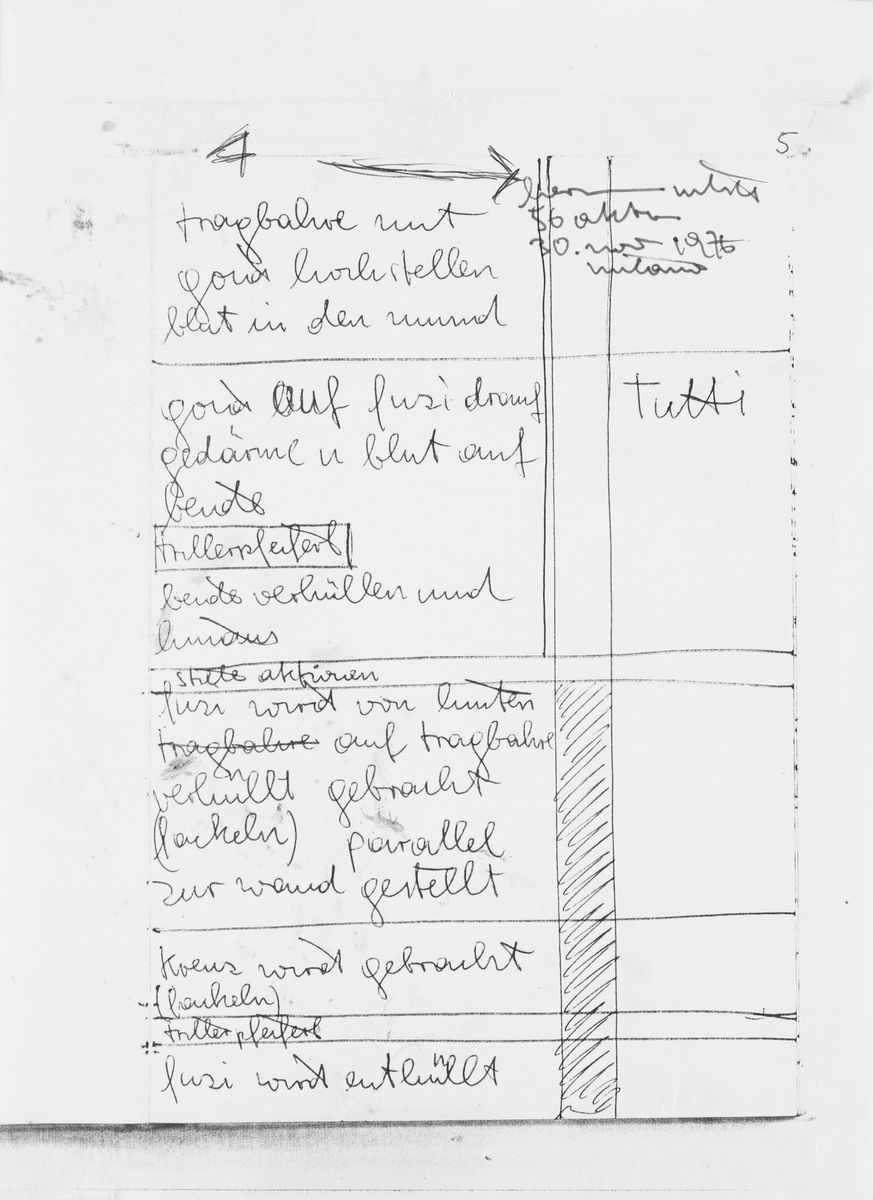 4
5
tragbahre mit
hochstellen
blut in den mund
56. aktion
30. nov 1976
milano
auf fuzi drauf
Tutti
gedärme u blut auf
beide
trillerpfeiferl
beide verhüllen und
hinaus
aktionen
fuzi wird von hinten
tragbahre auf tragbahre
verhüllt gebracht
(fackeln) parallel
zur wand gestellt
kreuz wird gebracht
(fackeln)
trillerpfeiferl
fuzi wird enthüllt